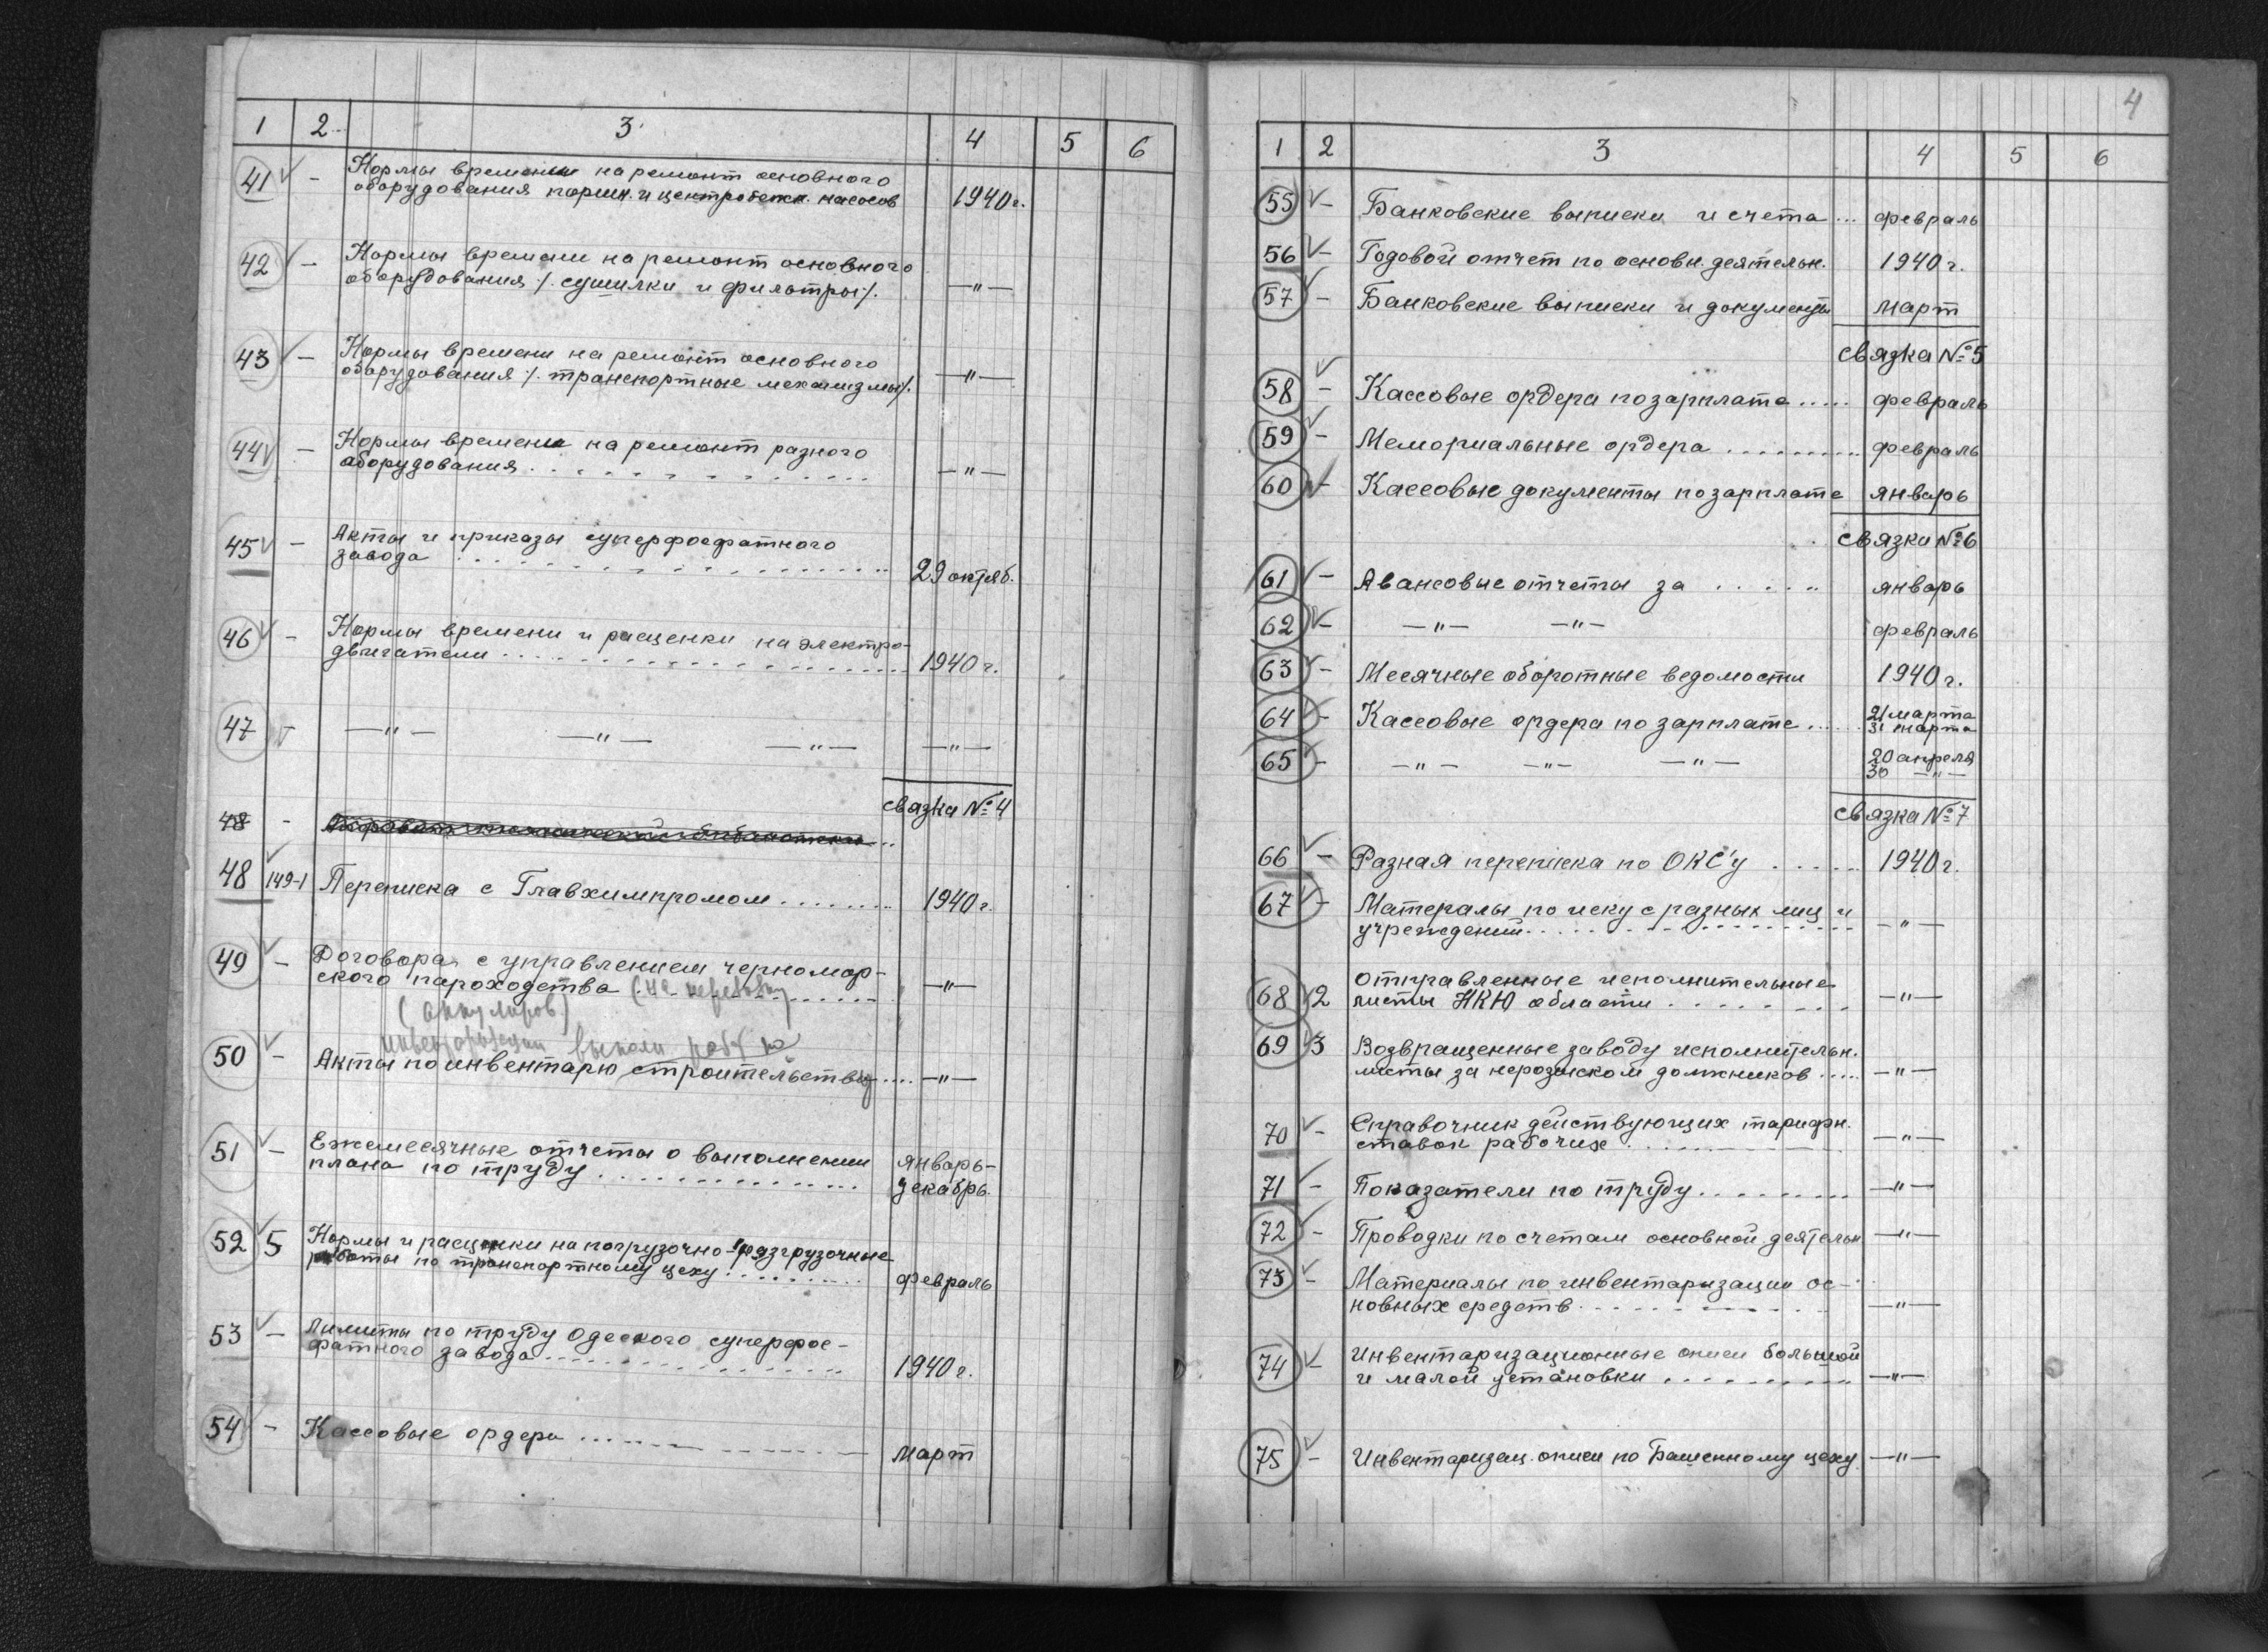 1 2 3 4 5 6
41 - Нормы времени на ремонт основного
оборудования порш. и центробежн. насосов 1940 г.
42 - Нормы времени на ремонт основного
оборудования /. сушилки и фильтры /. —"—
43 - Нормы времени на ремонт основного
оборудования /. транспортные механизмы /. —"—
44 - Нормы времени на ремонт разного
оборудования . . . . . . . . . . . . —"—
45 - Акты и приказы суперфосфатного
завода . . . . . . . . . . . . . . 29 октяб.
46 - Нормы времени и расценки на электро-
двигатели . . . . . . . . . . . . . . 1940 г.
47 - —"— —"— —"— —"—
связка №4
48 -
48 149-1 Переписка с Главхимпромом ........ 1940 г.
49 - Договора с управлением черномор-
ского пароходства . . . . . . —"—
50 - Акты по инвентарю строительству .... —"—
51 - Ежемесячные отчеты о выполнении январь-
плана по труду . . . . . . . . . . . декабрь.
52 5 Нормы и расценки на погрузочно-разгрузочные
работы по транспортному цеху ......... февраль
53 - Лимиты по труду Одеского суперфос-
фатного завода . . . . . . . . . . . . 1940 г.
54 - Кассовые ордера ........ март
4
1 2 3 4 5 6
55 - Банковские выписки и счета ... февраль
56 - Годовой отчет по основн. деятельн. 1940 г.
57 - Банковские выписки и документы март
связка №5
58 - Кассовые ордера по зарплате ..... февраль
59 - Мемориальные ордера ......... февраль
60 - Кассовые документы по зарплате январь
связки №6
61 - Авансовые отчеты за ..... январь
62 - —"— —"— февраль
63 - Месячные оборотные ведомости 1940 г.
64 - Кассовые ордера по зарплате ..... 21 марта
31 марта
65 - —"— —"— —"— 20 апреля
30 —"—
связка №7
66 - Разная переписка по ОКС'у ..... 1940 г.
67 - Матералы по иску с разных лиц и
учреждений. . . . . . . . . . . . —"—
68 2 Отправленные исполнительные
листы НКЮ области . . . . . . . —"—
69 3 Возвращенные заводу исполнительн.
листы за нерозыском должников ..... —"—
70 - Справочник действующих тарифн.
ставок рабочих . . . . . . . —"—
71 - Показатели по труду . . . . . . . —"—
72 - Проводки по счетам основной деятельн —"—
73 - Материалы по инвентаризации ос-
новных средств . . . . . . . . . —"—
74 - Инвентаризационные описи большой
и малой установки . . . . . . . . . —"—
75 - Инвентаризац. описи по Башенному цеху —"—